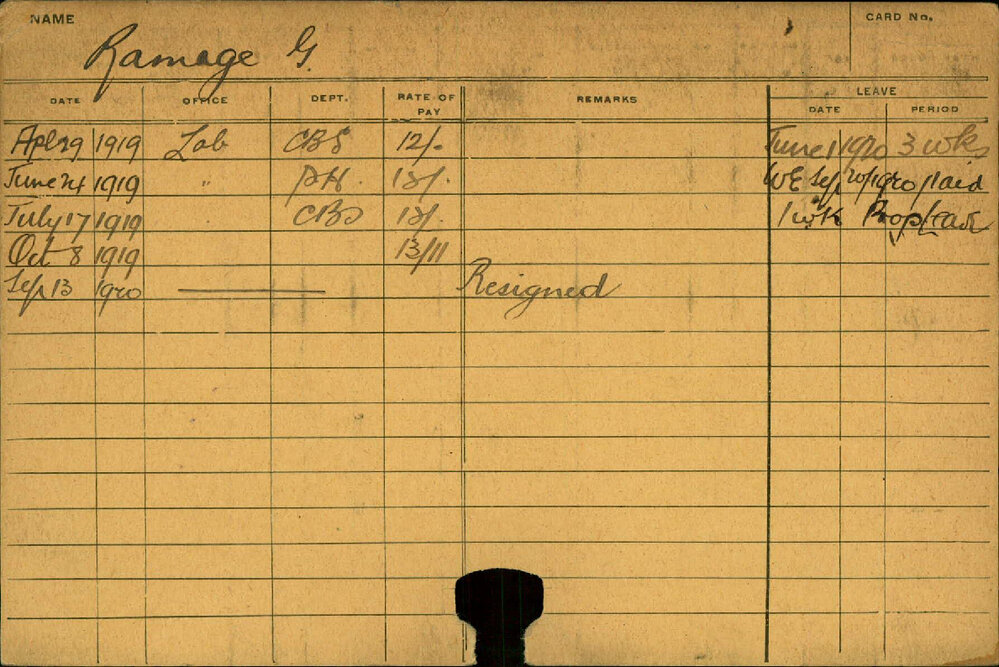 NAME CARD No.
Ramage G.
DATE OFFICE DEPT. RATE OF PAY REMARKS LEAVE
DATE PERIOD
Apl 29 1919 Lab CBS 12/- June 1 1920 3 wks
June 24 1919 " PH. 12/- WE Sep 20/1920 Paid
July 17 1919 CBS 12/- 1 wk Prop Leave
Oct 8 1919 13/11
Sep 13 1920 Resigned